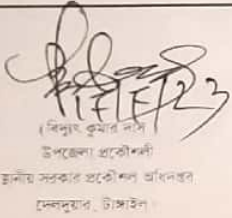 (বিদ্যুৎ কুমার দাস)
উপজেলা প্রকৌশলী
স্থানীয় সরকার প্রকৌশল অধিদপ্তর
দেলদুয়ার, টাঙ্গাইল